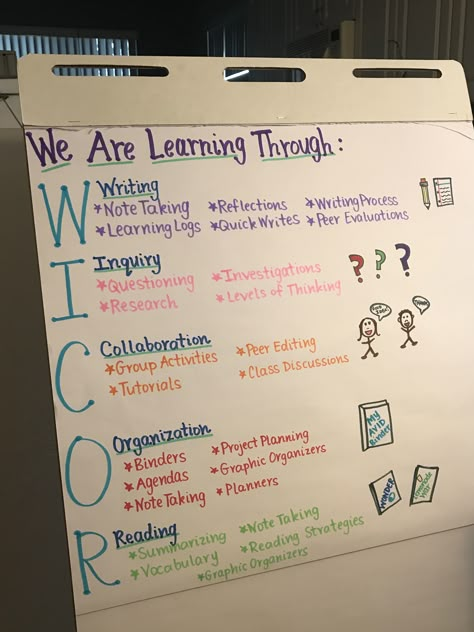 We Are Learning Through:
W
Writing
*Note Taking *Reflections *Writing Process
*Learning Logs *Quick Writes *Peer Evaluations
I
Inquiry
*Questioning *Investigations
*Research *Levels of Thinking
? ? ?
C
Collaboration
*Group Activities *Peer Editing
*Tutorials *Class Discussions
O
Organization
*Binders *Project Planning
*Agendas *Graphic Organizers
*Note Taking *Planners
My AVID Binder
R
Reading
*Summarizing *Note Taking
*Vocabulary *Reading Strategies
*Graphic Organizers
WONDER